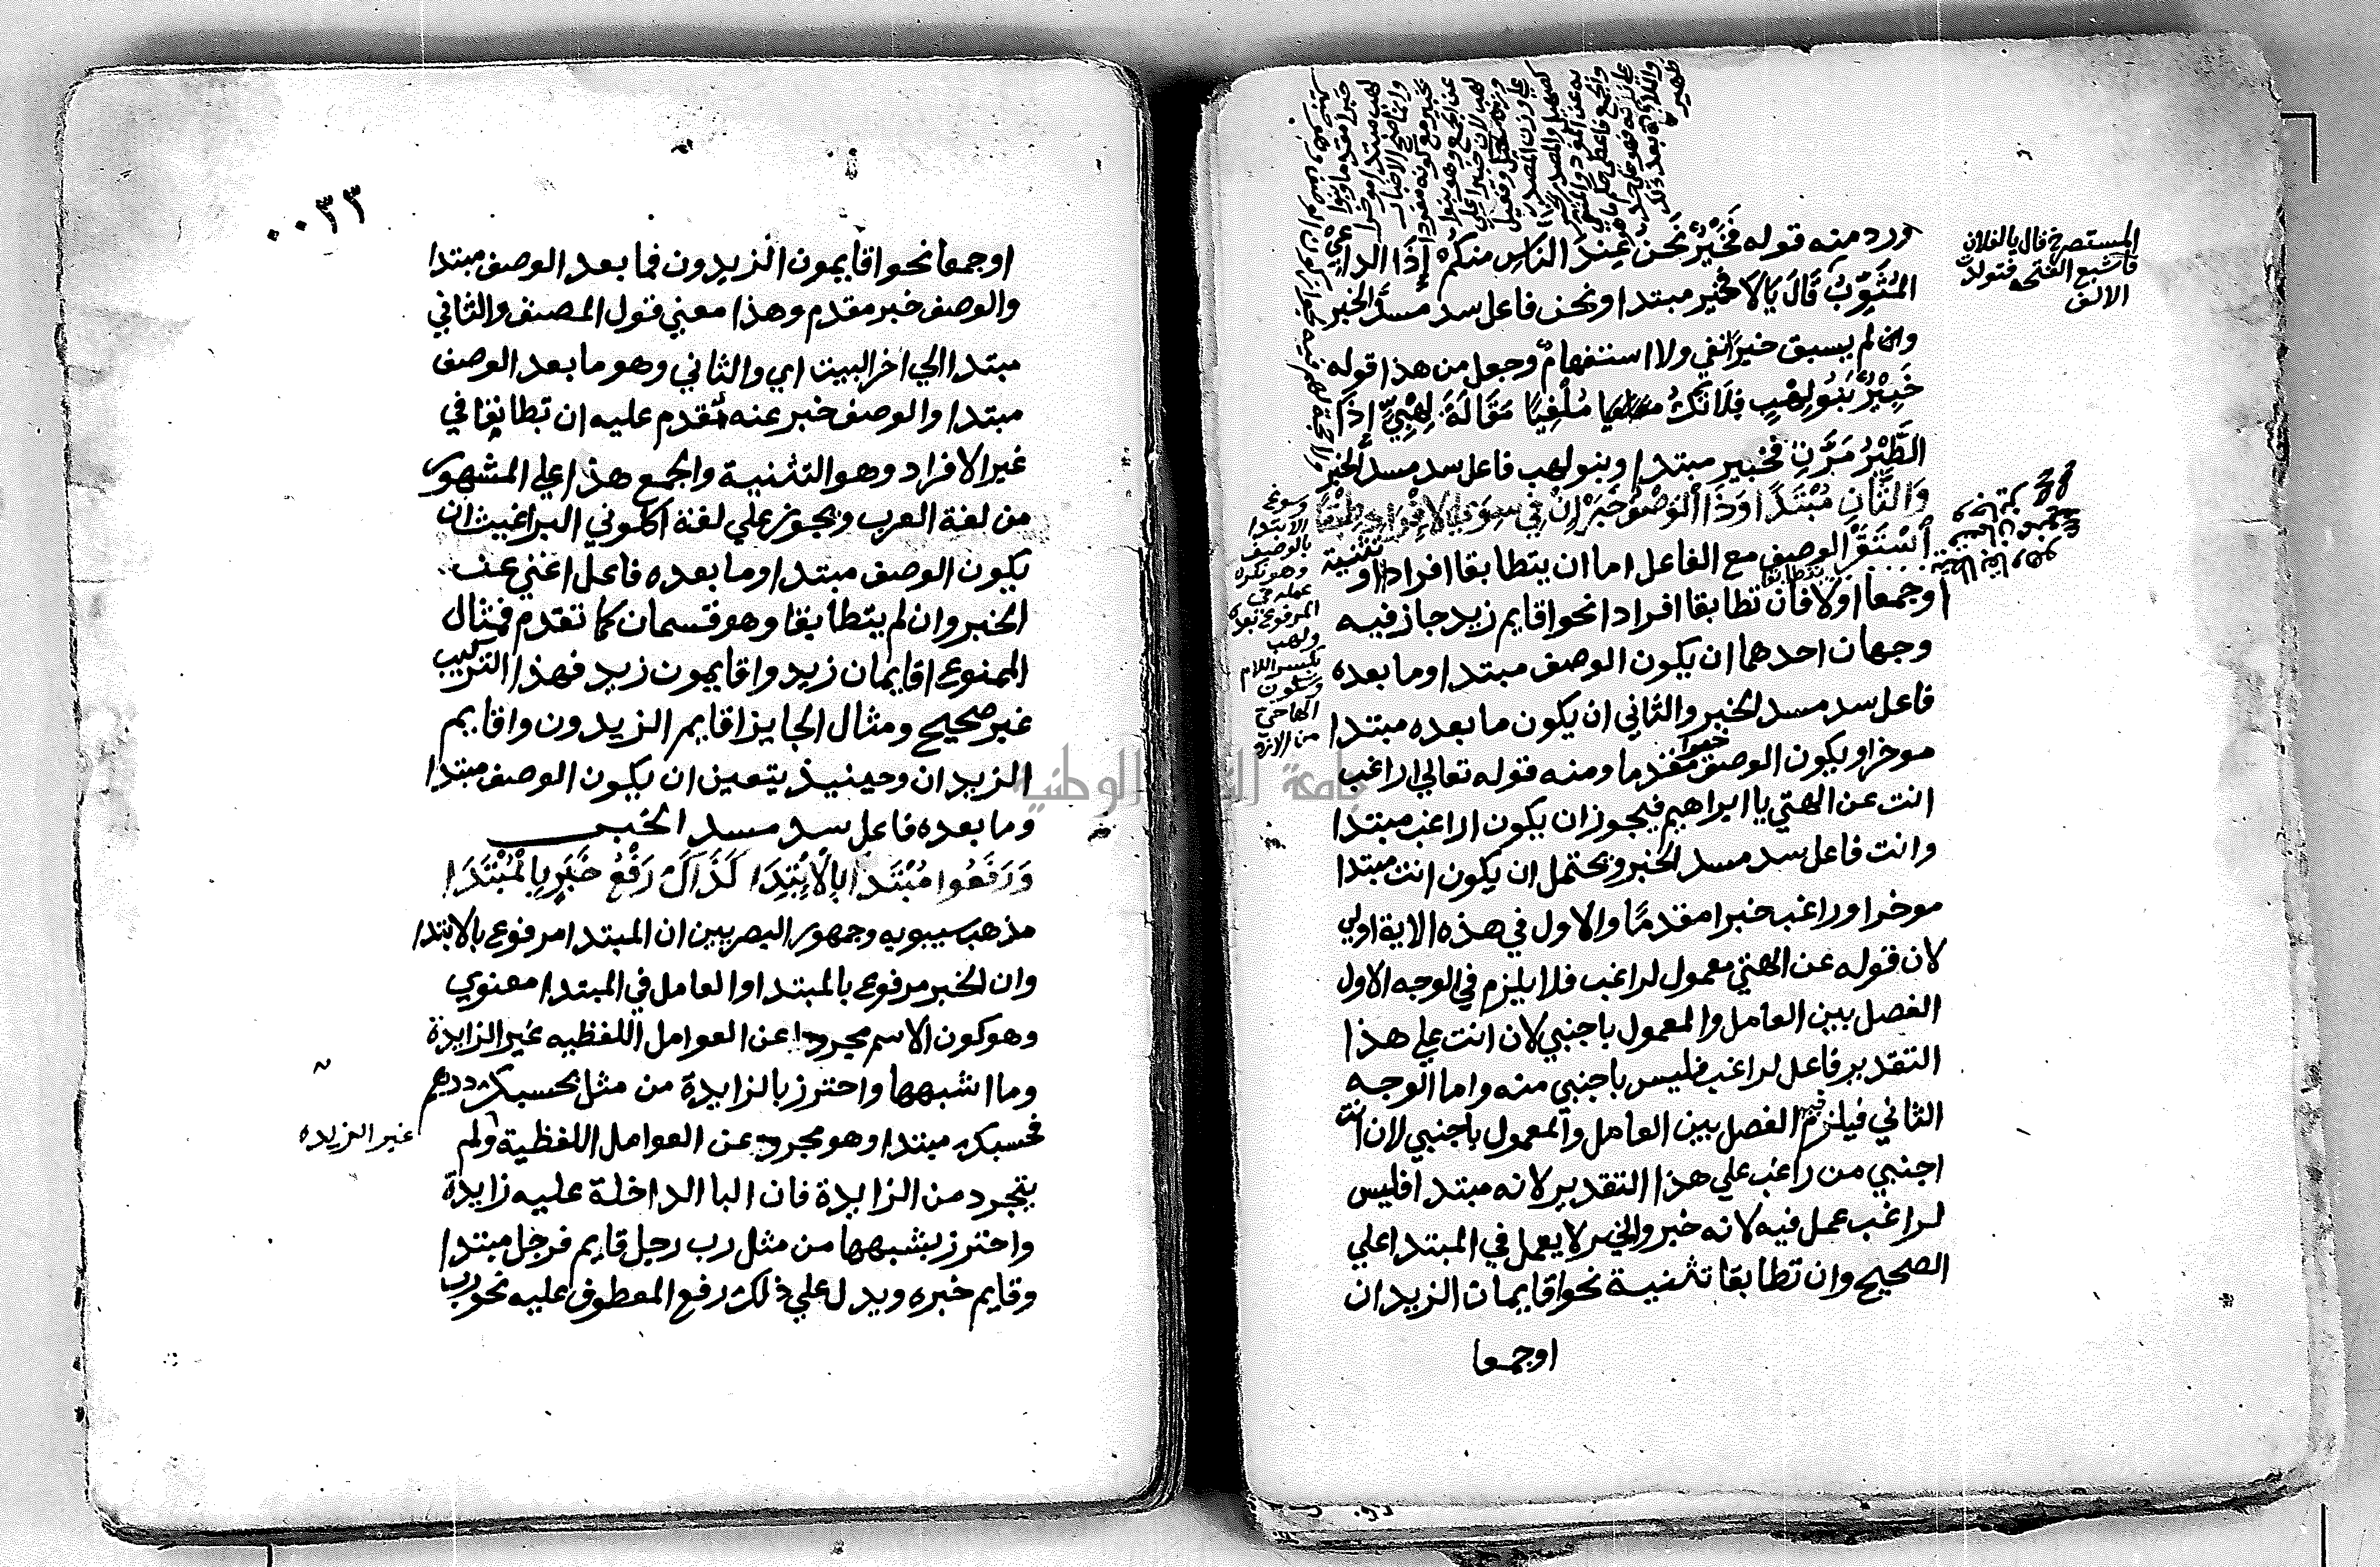 ورد منه قوله فَخَيْرٌ نَحْنُ عِنْدَ النَّاسِ مِنْكُمْ إِذَا الداعِي
المُثَوِّبُ قَالَ يَالَا فخير مبتدا ونحن فاعل سد مسد الخبر
وان لم يسبق خير نفي ولا استفهام وجعل من هذا قوله
خَبِيْرٌ بَنُو لِهْبٍ فَلَا تَكُ مُلْغِيًا مَقَالَةَ لِهْبِيٍّ إِذَا
الطَّيْرُ مَرَّتِ فخبير مبتدا وبنو لهب فاعل سد مسد الخبر
وَالثَّانِ مُبْتَدًا وَذَا الْوَصْفُ خَبَرْ إِنْ فِي سِوَى الْإِفْرَادِ طِبْقًا
أسْتَقَرْ الوصف مع الفاعل اما ان يتطابقا افرادا او تثنية
او جمعا او لا فان تطابقا افرادا نحو اقايم زيد جاز فيه
وجهان احدهما ان يكون الوصف مبتدا وما بعده
فاعل سد مسد الخبر والثاني ان يكون ما بعده مبتدا
موخرا ويكون الوصف خبرا مقدما ومنه قوله تعالي اراغب
انت عن الهتي يا ابراهيم فيجوز ان يكون اراغب مبتدا
وانت فاعل سد مسد الخبر ويحتمل ان يكون انت مبتدا
موخرا وراغب خبرا مقدمًا والاول في هذه الاية اولي
لان قوله عن الهتي معمول لراغب فلا يلزم في الوجه الاول
الفصل بين العامل والمعمول باجنبي لان انت علي هذا
التقدير فاعل لراغب فليس باجنبي منه واما الوجه
الثاني فيلزم فيه الفصل بين العامل والمعمول باجنبي لان انت
اجنبي من راغب علي هذا التقدير لانه مبتدا فليس
لراغب عمل فيه لانه خبر والخبر لا يعمل في المبتدا علي
الصحيح وان تطابقا تثنية نحو اقايمان الزيدان
اوجمعا
المستصرخ قال يالفلان
فاشبع الفتحه فتولدت
الالف
وسوغ
الابتدا
بالوصف
وهو نكرة
عمله في
المرفوع بعده
ولهب
بكسر اللام
وسكون
الهاحي
من الازد
٠٠٣٣
اوجمعا نحو اقايمون الزيدون فما بعد الوصف مبتدا
والوصف خبر مقدم وهذا معني قول المصنف والثاني
مبتدا الي اخر البيت اي والثاني وهو ما بعد الوصف
مبتدا والوصف خبر عنه مُقدم عليه ان تطابقا في
غير الافراد وهو التثنية والجمع هذا علي المشهور
من لغة العرب ويجوز علي لغة اكلوني البراغيث ان
يكون الوصف مبتدا وما بعده فاعل اغني عن
الخبر وان لم يتطابقا وهو قسمان كما تقدم فمثال
الممنوع اقايمان زيد واقايمون زيد فهذا التركيب
غير صحيح ومثال الجايز اقايم الزيدون واقايم
الزيدان وحينيذ يتعين ان يكون الوصف مبتدا
وما بعده فاعل سد مسد الخبر
وَرَفَعُوا مُبْتَدَأً بِالْاِبْتِدَا كَذَاكَ رَفْعُ خَبَرٍ بِالْمُبْتَدَا
مذهب سيبويه وجمهور البصريين ان المبتدا مرفوع بالابتدا
وان الخبر مرفوع بالمبتدا والعامل في المبتدا معنوي
وهو كون الاسم مجردا عن العوامل اللفظيه غير الزايدة
وما اشبهها واحترز بالزايدة من مثل بحسبك درهم
فحسبك مبتدا وهو مجرد عن العوامل اللفظية ولم
غير المزيده
يتجرد من الزايدة فان البا الداخلة عليه زايدة
واحترز بشبهها من مثل رب رجل قايم فرجل مبتدا
وقايم خبره ويدل علي ذلك رفع المعطوف عليه نحو رب
جامعة النجاح الوطنية